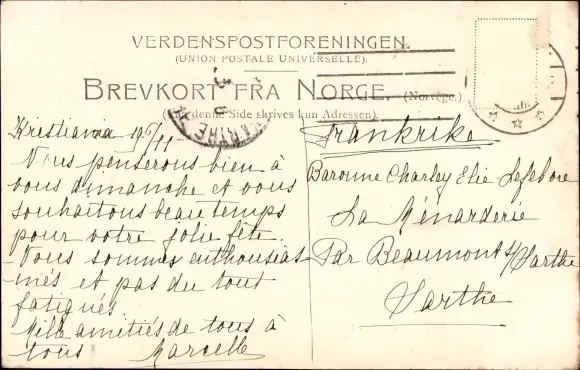 VERDENSPOSTFORENINGEN.
(UNION POSTALE UNIVERSELLE).
BREVKORT FRA NORGE. (Norvège.)
(Paa denne Side skrives kun Adressen).
SARTHE
Kristiania 19 6/7 11
Nous penserons bien à
vous dimanche et vous
souhaitons beau temps
pour votre jolie fête.
Nous sommes enthousias
més et pas du tout
fatigués.
Mille amitiés de tous à
tous Marcelle
Frankrike
Baronne Charley Elie Lefebvre
La Ménarderie
Par Beaumont s/Sarthe
Sarthe